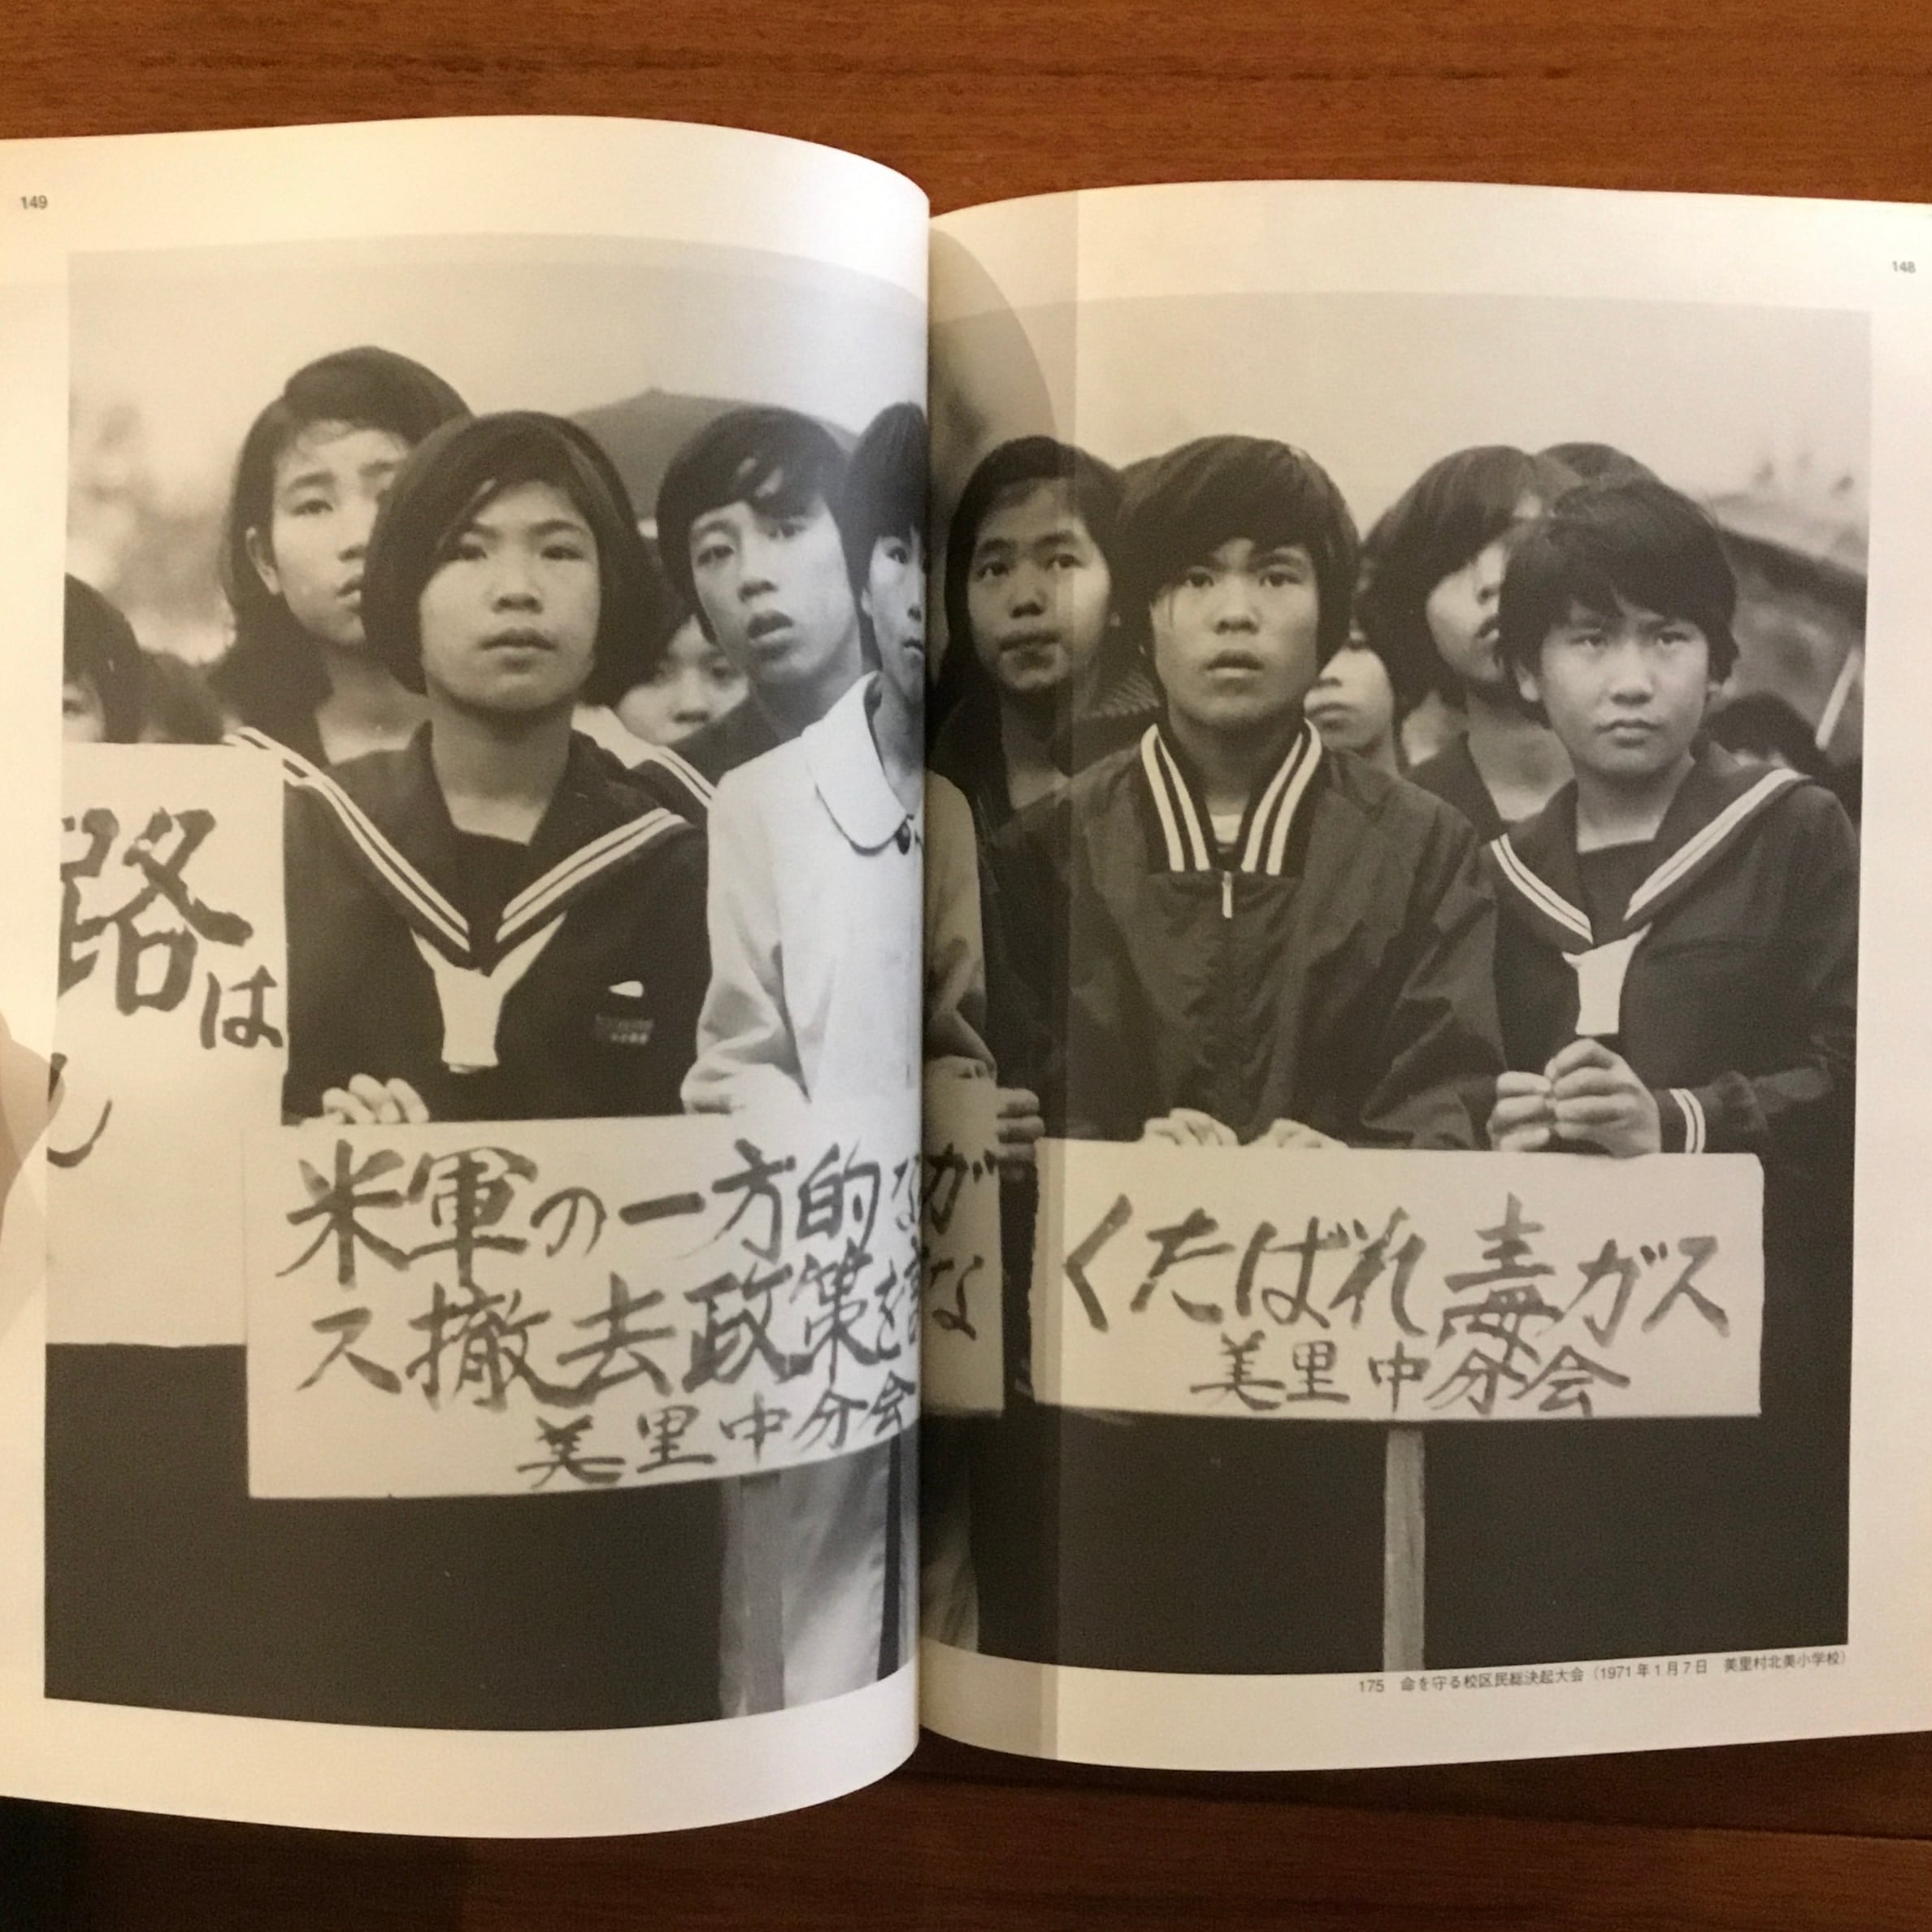 149
148
路は
米軍の一方的な
ス撤去政策を
美里中分会
が
な
くたばれ毒ガス
美里中分会
175 命を守る校区民総決起大会(1971年1月7日 美里村北美小学校)